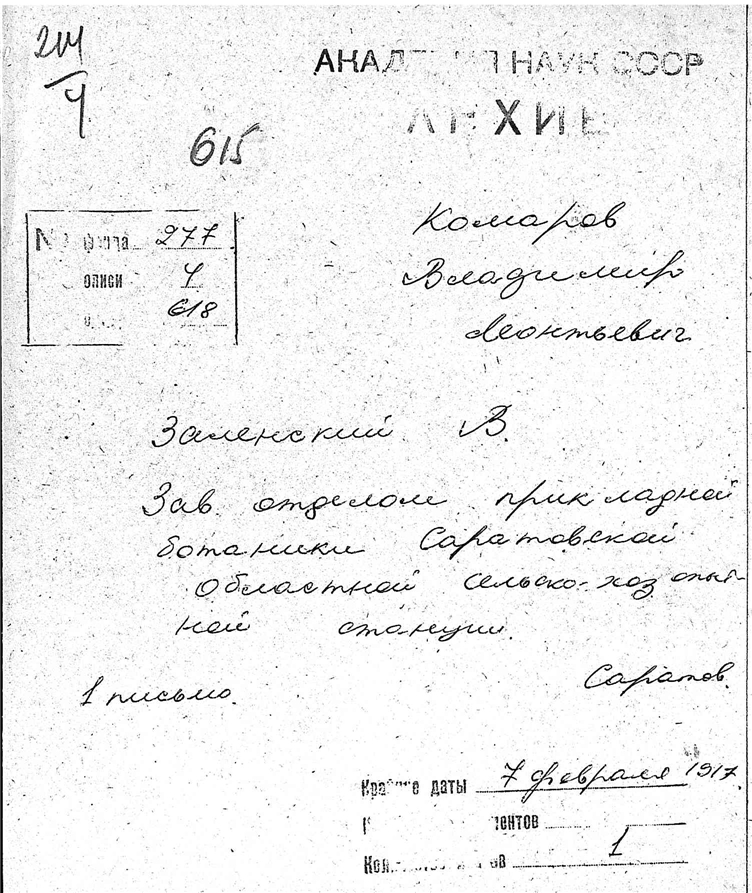 214
4
615
АКАДЕМИЯ НАУК СССР
АРХИВ
№ фонда 277
описи 4
618
Комаров
Владимир
Леонтьевич
Заленский В.
Зав. отделом прикладной
ботаники Саратовской
Областной сельско-хоз. опыт-
ной станции.
Саратов.
1 письмо.
Крайние даты 7 февраля 1917.
ментов
Кол. 1